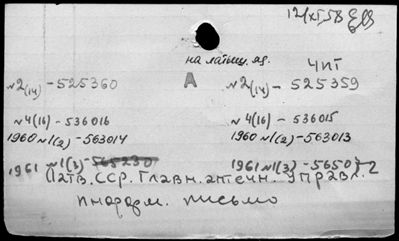 12/XI.58
на латыш. яз. ЧИТ
№2(14) - 525360 А №2(14) - 525359
№4(16) - 536016 №4(16) - 536015
1960 №1(2) - 563014 1960 №1(2) - 563013
1961 №1(3) - 565230 1961 №1(3) - 56507
Латв. ССР. Главн. аптечн. управл.
Информ. письмо